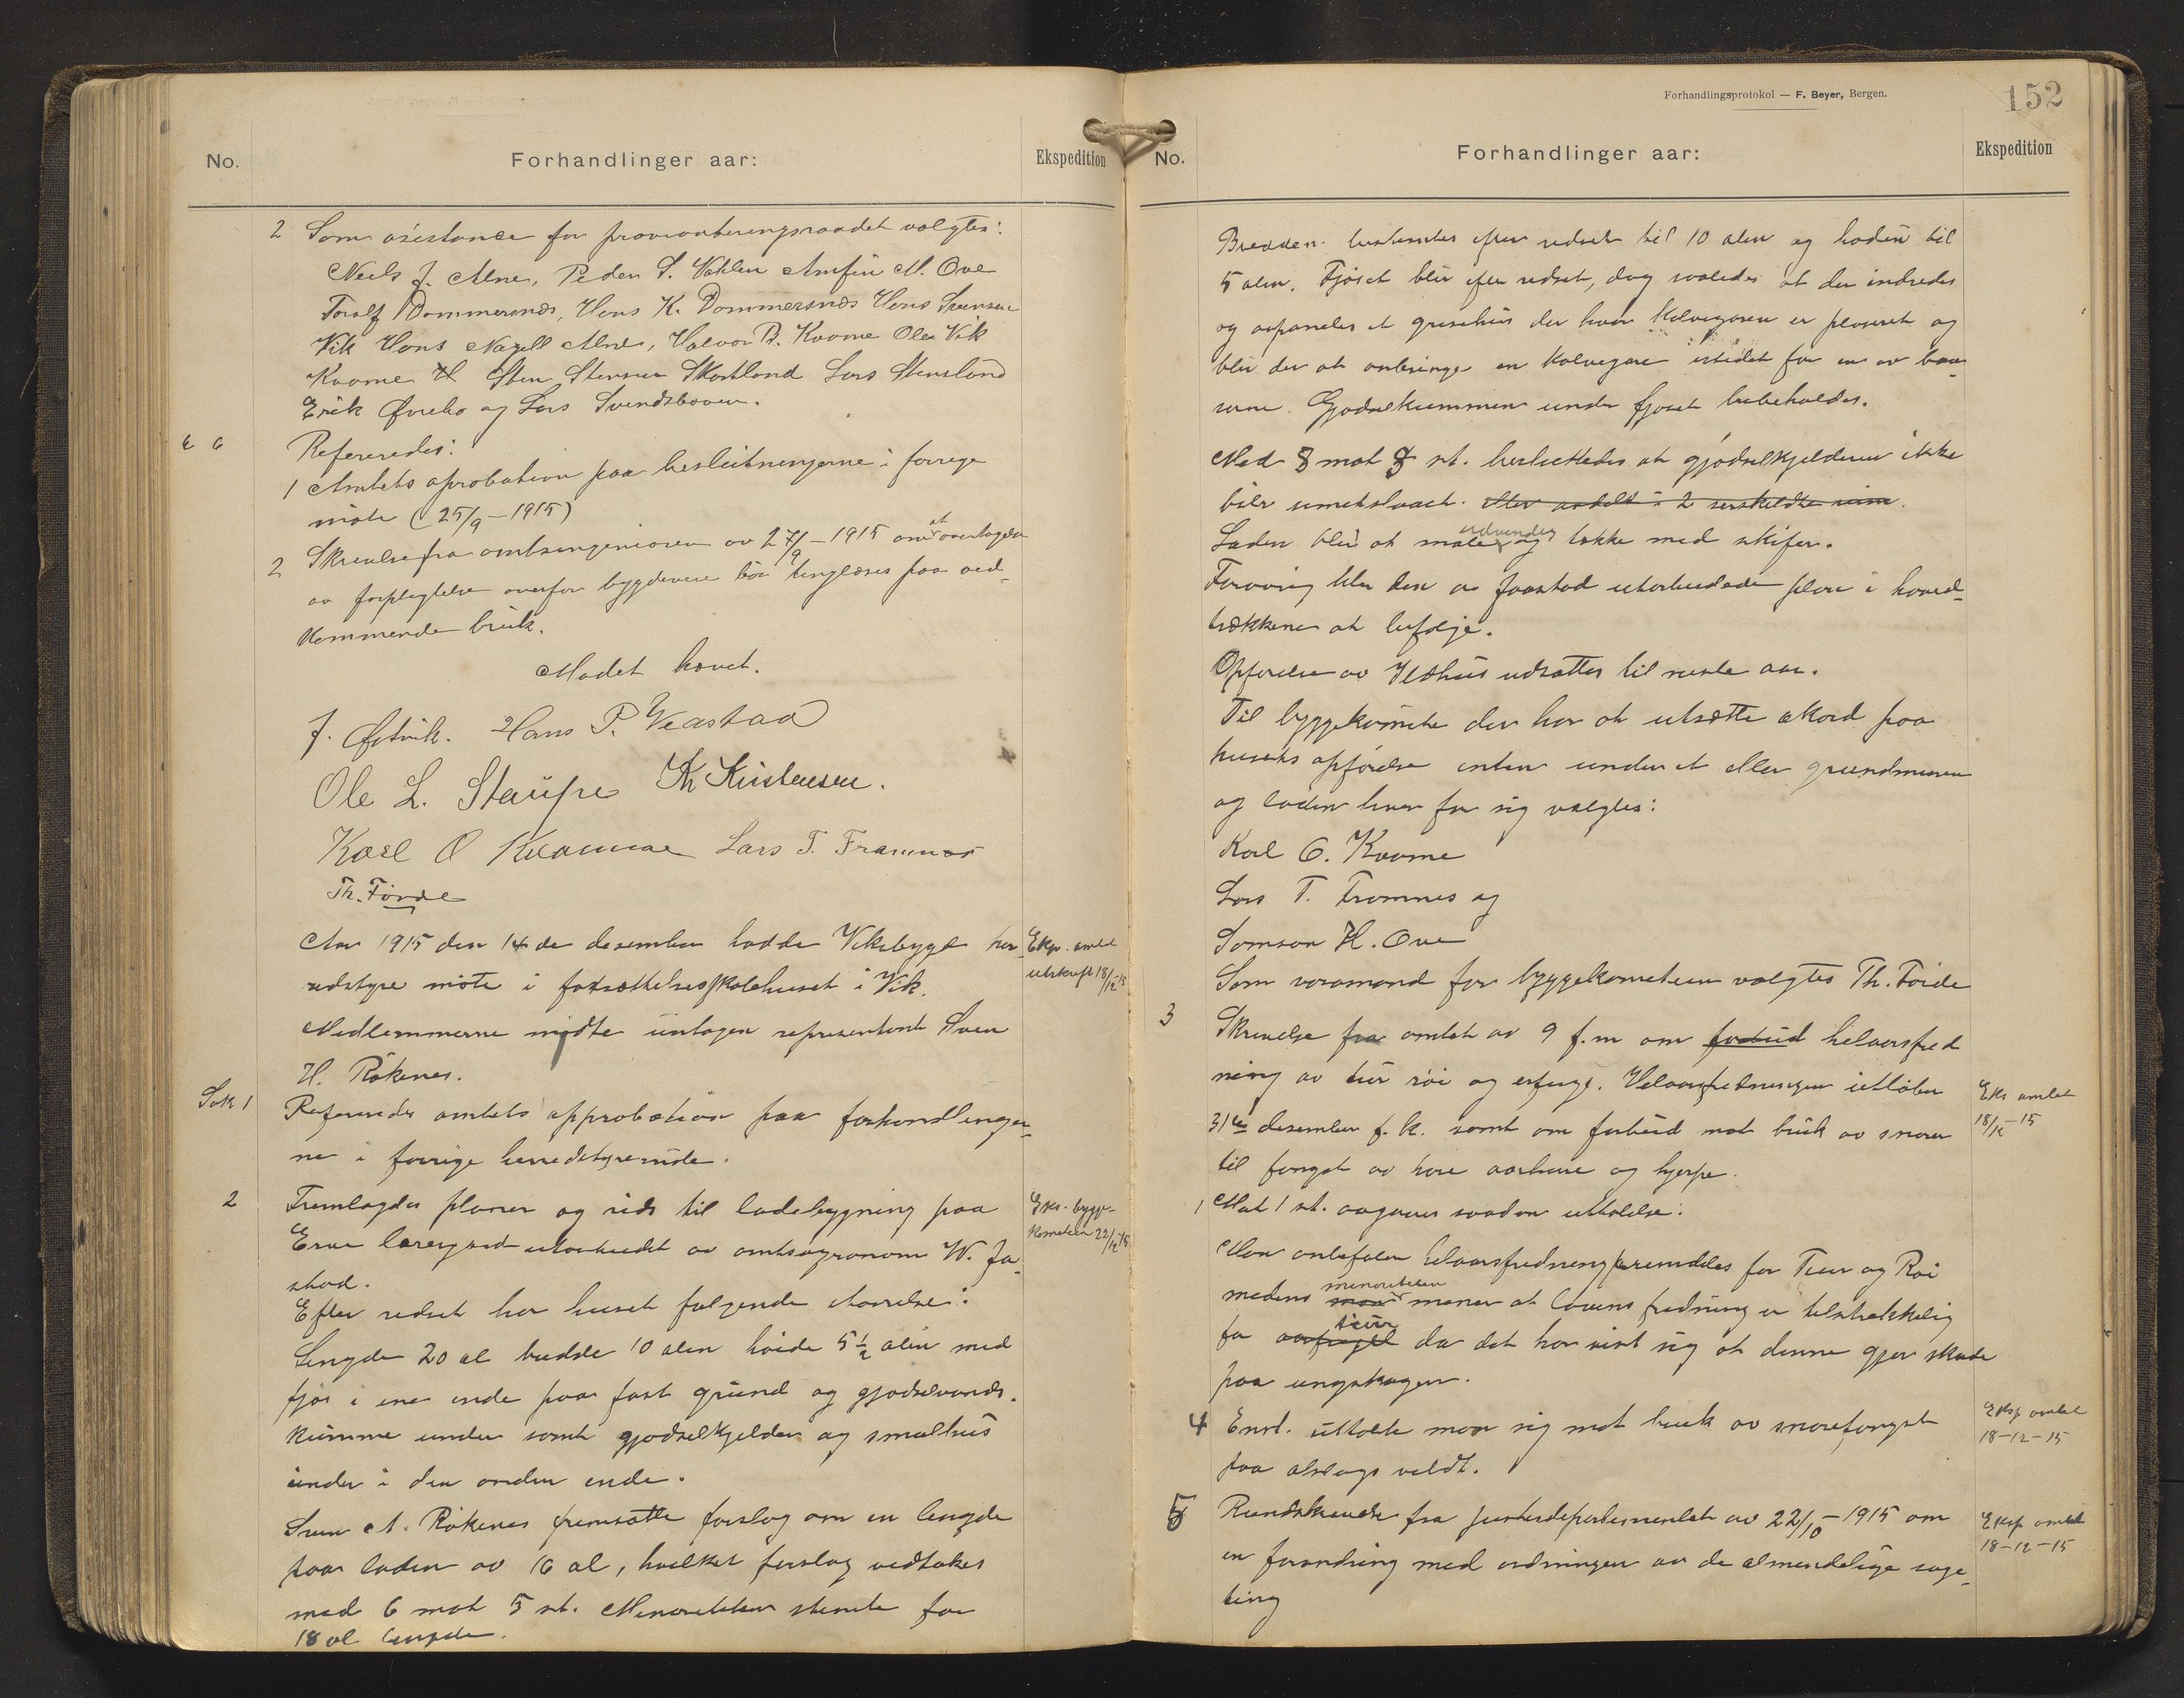 No. Forhandlinger aar: Ekspedition
2 Som asistanse for provianteringsraadet valgtes:
Neels J. Alne, Peder S. Vahlen Arnfin M. Ove
Toralf Dommersnes, Hans K. Dommersnes Hans Svensen
Vik Hans Nagell Alne, Halvor B. Kvame Ole Vik
Kvame Sten Stensen Skartland Lars Stensland
Erik Øvrebo og Lars Svendsboen.
6 Refereredes:
1 Amtets aprobation paa beslutningerne i forrige
møte (25/9 – 1915)
2 Skrivelse fra amtsingeniøren av 27/9 – 1915 om at overtagelse
av forpligtelse overfor bygdeveie bør tinglæses paa ved-
kommende bruk.
Mødet hævet.
J. Østvik. Hans P. Veastad
Ole L. Staupe K Kristensen.
Karl O Kvamme Lars T. Framnes
Th. Førde
Aar 1915 den 14de desember hadde Vikebygd her- Eksp. amtet
redstyre møte i fortsættelsesskolehuset i Vik. utskrift 18/12 15
Medlemmerne mødte untagen representant Sven
H. Røkenes.
Sak 1 Refereredes amtets approbation paa forhandlinger-
ne i forrige herredstyremøte.
2 Fremlagdes planer og rids til ladebygning paa Eks. bygge-
Erve lærergard utarbeidet av amtsagronom W. Fa- kometeen 22/12 15
stad.
Efter ridset har huset følgende størrelse:
Længde 20 al bredde 10 alen høide 5 1/2 alen med
fjøs i ene ende paa fast grund og gjødselvands-
kumme under samt gjødselkjelder og smalhus
under i den anden ende.
Sven H. Røkenes fremsatte forslag om en længde
paa laden av 16 al, hvilket forslag vedtokes
med 6 mot 5 st. Minoriteten stemte for
18 al længde.
Forhandlingsprotokol — F. Beyer, Bergen. 152
No. Forhandlinger aar: Ekspedition
Bredden bestemtes efter ridset til 10 alen og høiden til
5 alen. Fjøset blir efter ridset, dog saaledes at der indredes
og avpaneles et grisehus der hvor kalvegaren er plaseret og
blir der at anbringe en kalvegare istedet for en av baa-
sene. Gjødselkummen under fjøset beholdes.
Med 8 mot 3 st. besluttedes at gjødselkjelderen ikke
blir sementslaaet. eller avdelt i 2 særskildte rum.
Laden blir at male udvendig og tække med skifer.
Forøvrig blir den av faastad utarbeidede plan i hoved-
trækkene at befølge.
Opførelse av Ildhus udsættes til neste aar.
Til byggekomite der har at utsætte akord paa
husets opførelse enten under et eller grundmuren
og laden hver for sig valgtes:
Karl O. Kvame
Lars T. Framnes og
Samson H. Ove
Som varamand for byggekometeen valgtes Th. Førde
3 Skrivelse fra amtet av 9 f.m om forbud helaarsfred
ning av tiur røi og erfugl. Helaarsfredningen utløber Eks amtet
31te desember f. k. samt om forbud mot bruk av snarer 18/12 – 15
til fangst av hare aarhane og hjerpe.
Mot 1 st. avgaves saadan uttalelse:
Man anbefaler helaarsfredning fremdeles for Tiur og Røi
medens man minoriteten mener at lovens fredning er tilstrækkelig
for aarfugl tiur da det har vist sig at denne gjør skade
paa ungskogen.
4 Enst. uttalte man sig mot bruk av snarefangst Eksp amtet
paa alslags vildt. 18–12–15
5 Rundskrivelse fra justisdepartementet av 22/10 – 1915 om Eksp amtet
en forandring med ordningen av de almindelige sage- 18–12–15
ting